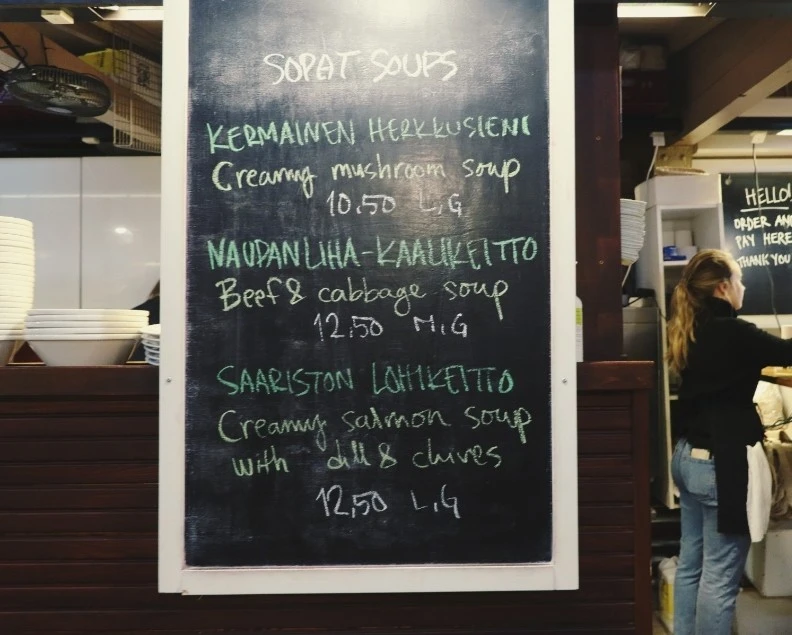 SOPAT SOUPS
KERMAINEN HERKKUSIENI
Creamy mushroom soup
10.50 L,G
NAUDANLIHA-KAALIKEITTO
Beef & cabbage soup
12.50 M,G
SAARISTON LOHIKEITTO
Creamy salmon soup
with dill & chives
12,50 L,G
HELLO!
ORDER AND
PAY HERE
THANK YOU